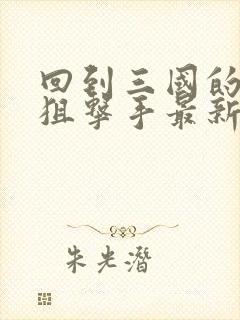 回到三國的
狙擊手最新
朱光潛